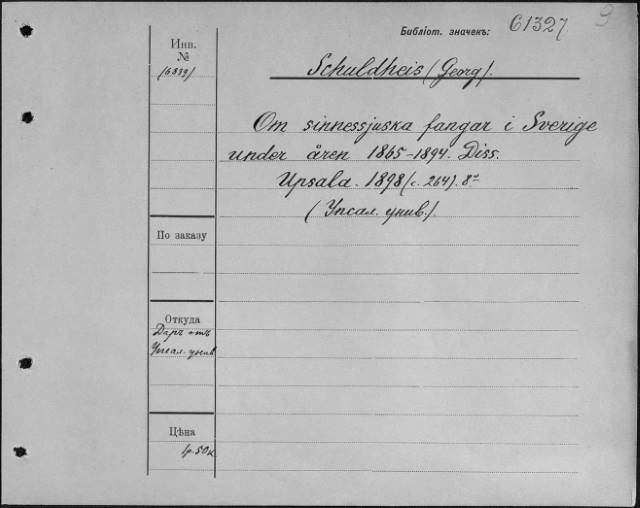 Библіот. значекъ: 61327.
9
Инв.
№
(6839)
Schuldheis (Georg).
Om sinnessjuska fangar i Sverige
under åren 1865-1894. Diss.
Upsala. 1898 (с. 264). 8º
(Упсал. унив.).
По заказу
Откуда
Даръ отъ
Упсал. унив
Цѣна
1р. 50к